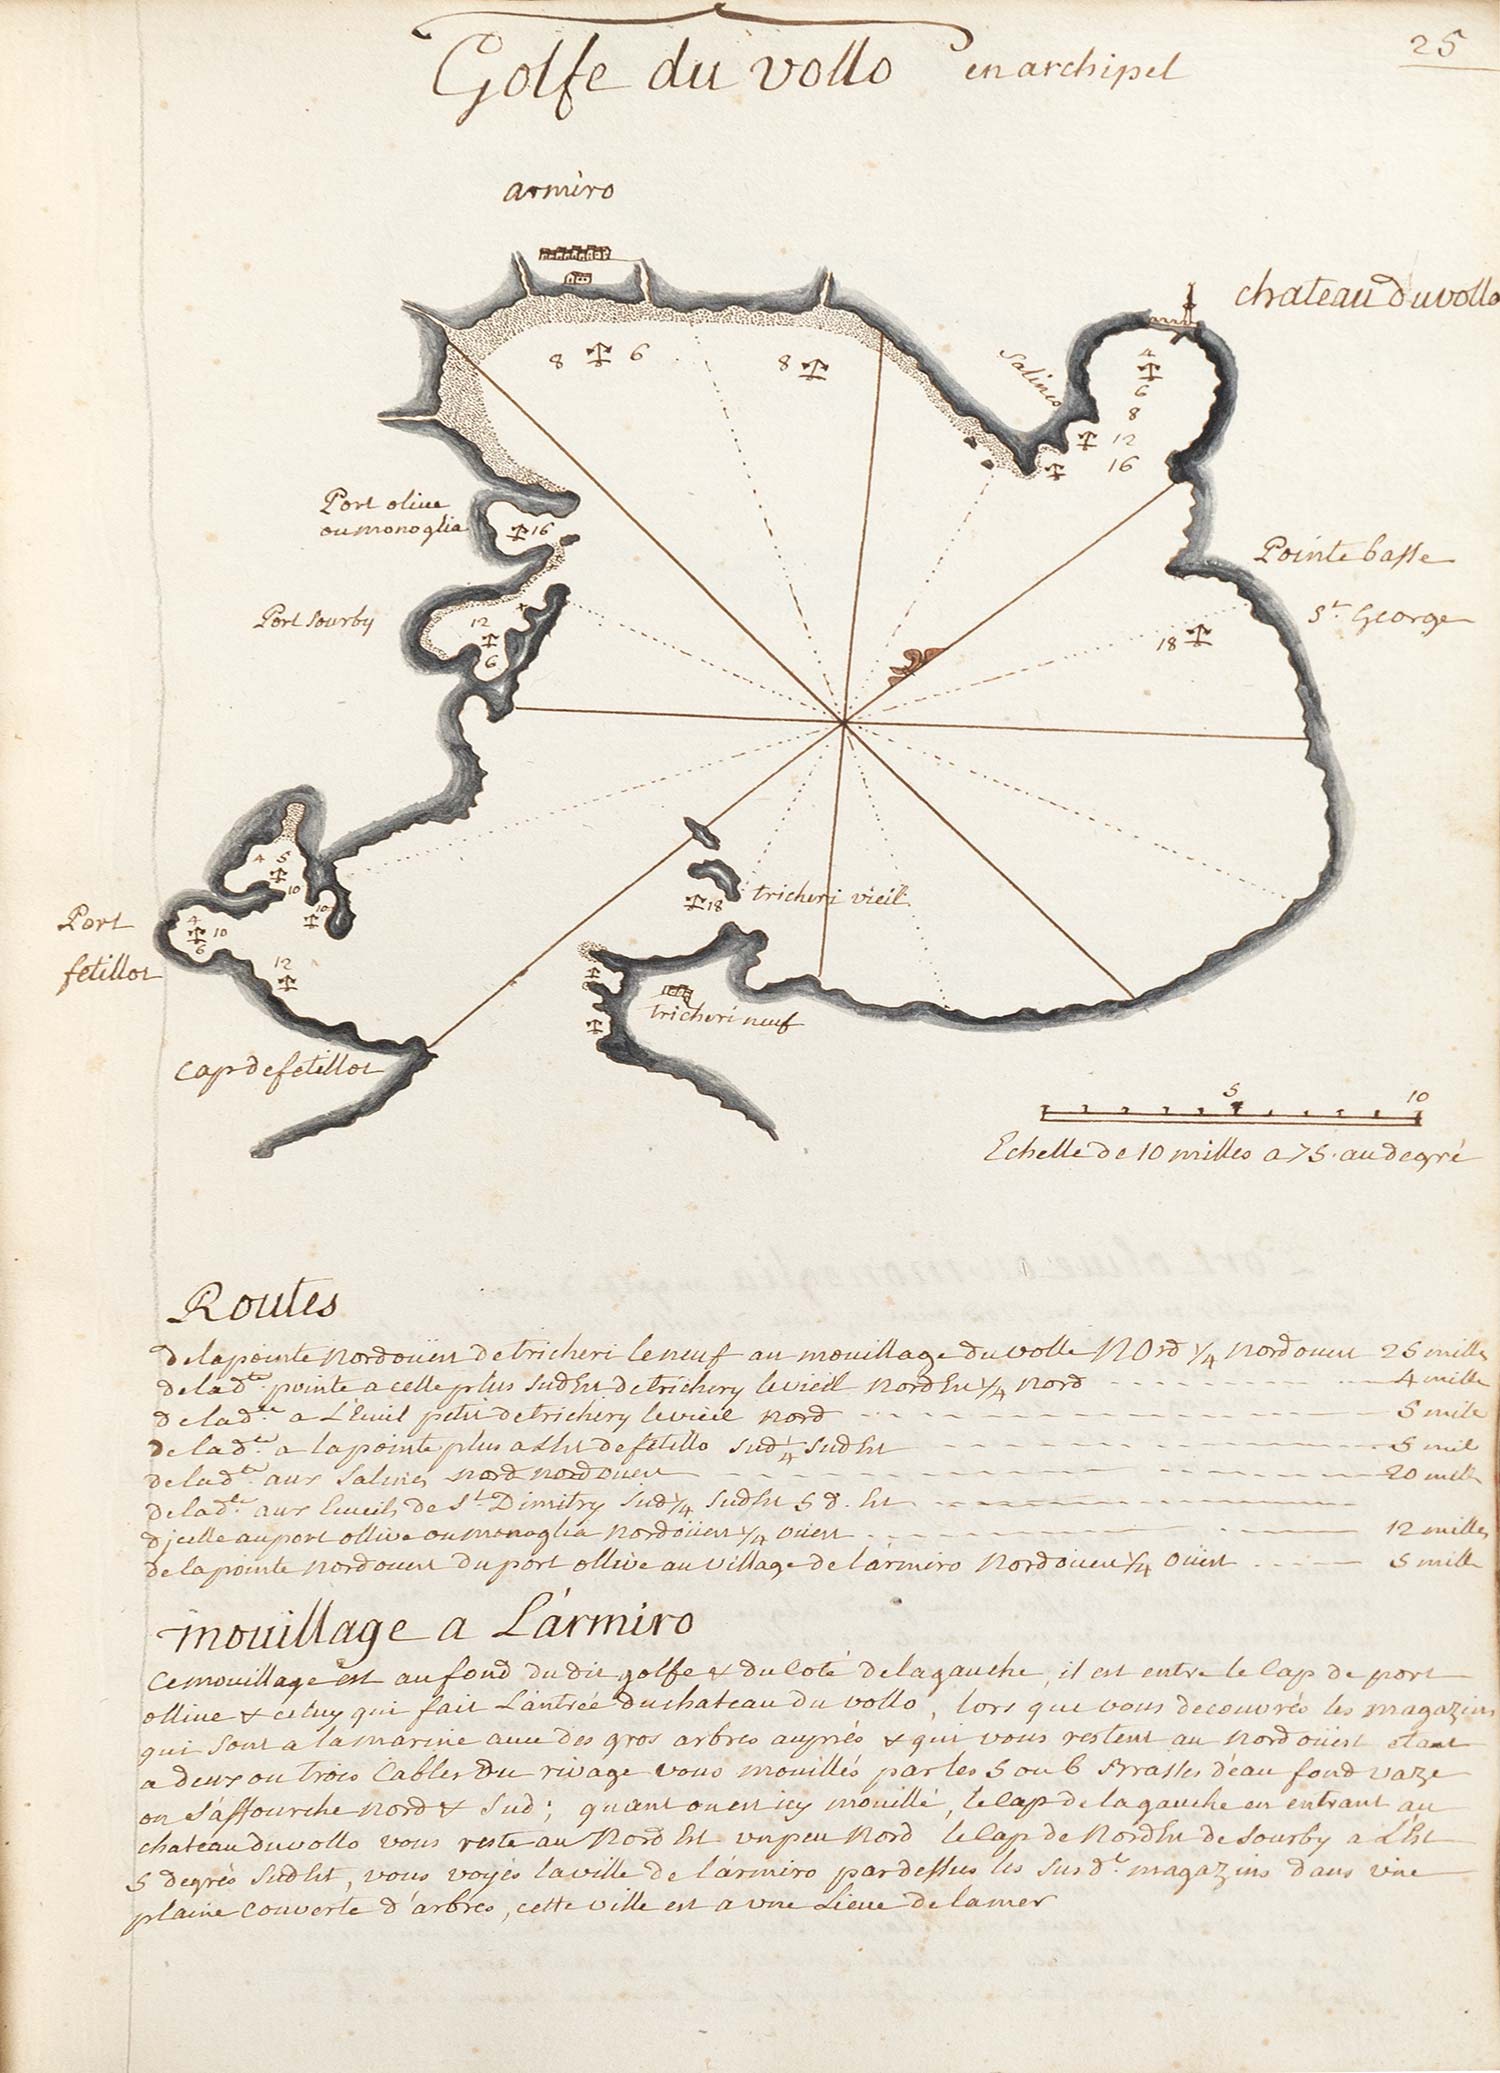 25
Golfe du vollo en archipel
armiro
chateau du vollo
8 6
8
Salines
4
6
8
12
16
Port olive
ou monoglia
16
Pointe basse
St George
18
Port Sourby
12
6
4 5
10
10
Port
fetillot
4
10
6
12
18
tricheri vieil
tricheri neuf
cap de fetillot
5 10
Echelle de 10 milles a 75. au degré
Routes
de la pointe nordoüest de tricheri le neuf au mouillage du volle NOrd 1/4 nordouest 25 milles
de la dte pointe a celle plus sudEst de trichery le vieil nordEst 1/4 nord 4 mille
de la dte a L'Ecuil petit de trichery le vieil nord 5 mille
de la dte a la pointe plus a Lest de fetillo sud 1/4 sudEst 5 mil
de la dte aux Salines nord nordouest 20 mille
de la dte aux Ecueils de St Dimitry Sud 1/4 SudEst 5 d. Est
d'icelle au port ollive ou monoglia nordoüest 1/4 ouest 12 milles
de la pointe nordouest du port ollive au village de l'armiro nordoüest 1/4 oüest 5 mille
mouillage a L'armiro
Ce mouillage est au fond du dit golfe & du Coté de la gauche, il est entre le Cap de port
ollive & celuy qui fait L'antrée du chateau du vollo, lors que vous decouvrés les magazins
qui sont a la marine avec des gros arbres aupriés & qui vous restent au nordoüest etant
a deux ou trois Cables du rivage vous mouillés par les 5 ou 6 Brasses d'éau fond vaze
on s'affourche nord & Sud; quant on est icy mouillé, le Cap de la gauche en entrant au
chateau du vollo vous reste au Nord Est un peu Nord le Cap de NordEst de Sourby a L'Est
5 degrés SudEst, vous voyés la ville de l'armiro par dessus les sus dt magazins dans vne
plaine couverte d'arbres, cette ville est a vne Lieue de la mer